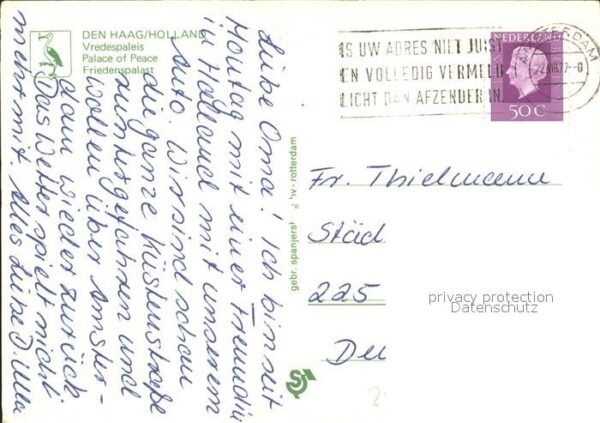 DEN HAAG/HOLLAND
Vredespaleis
Palace of Peace
Friedenspalast
Liebe Oma! Ich bin seit
Montag mit einer Freundin
in Holland mit unserem
Auto. Wir sind schon
die ganze Küstenstraße
runtergefahren und
wollen über Amster-
dam wieder zurück
Das Wetter spielt nicht
mehr mit. Alles Liebe
gebr. spanjersb v-rotterdam
IS UW ADRES NIET JUIST
EN VOLLEDIG VERMELD
LICHT DAN AFZENDER IN
TERDAM
NEDERLAND
50 C
Fr. Thielmann
Städ
225
De
privacy protection
Datenschutz